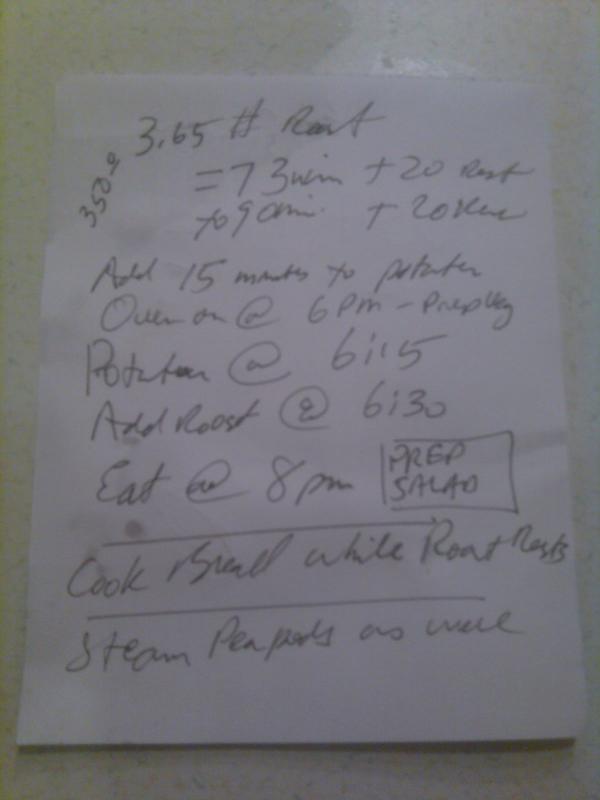 3.65 # Roast
350°
= 73 min + 20 Rest
to 90 min. + 20 Rest
Add 15 minutes to potatoes
Oven on @ 6 PM - Prep Veg
Potatoes @ 6:15
Add Roast @ 6:30
Eat @ 8 pm
PREP
SALAD
Cook Bread while Roast Rests
Steam Peapods as well